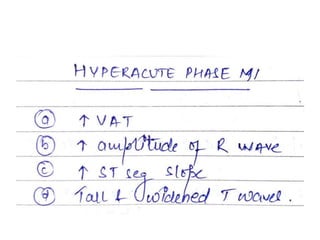 HYPERACUTE PHASE MI
(a) ↑ VAT
(b) ↑ amplitude of R wave
(c) ↑ ST seg slope
(d) Tall & widened T waves.